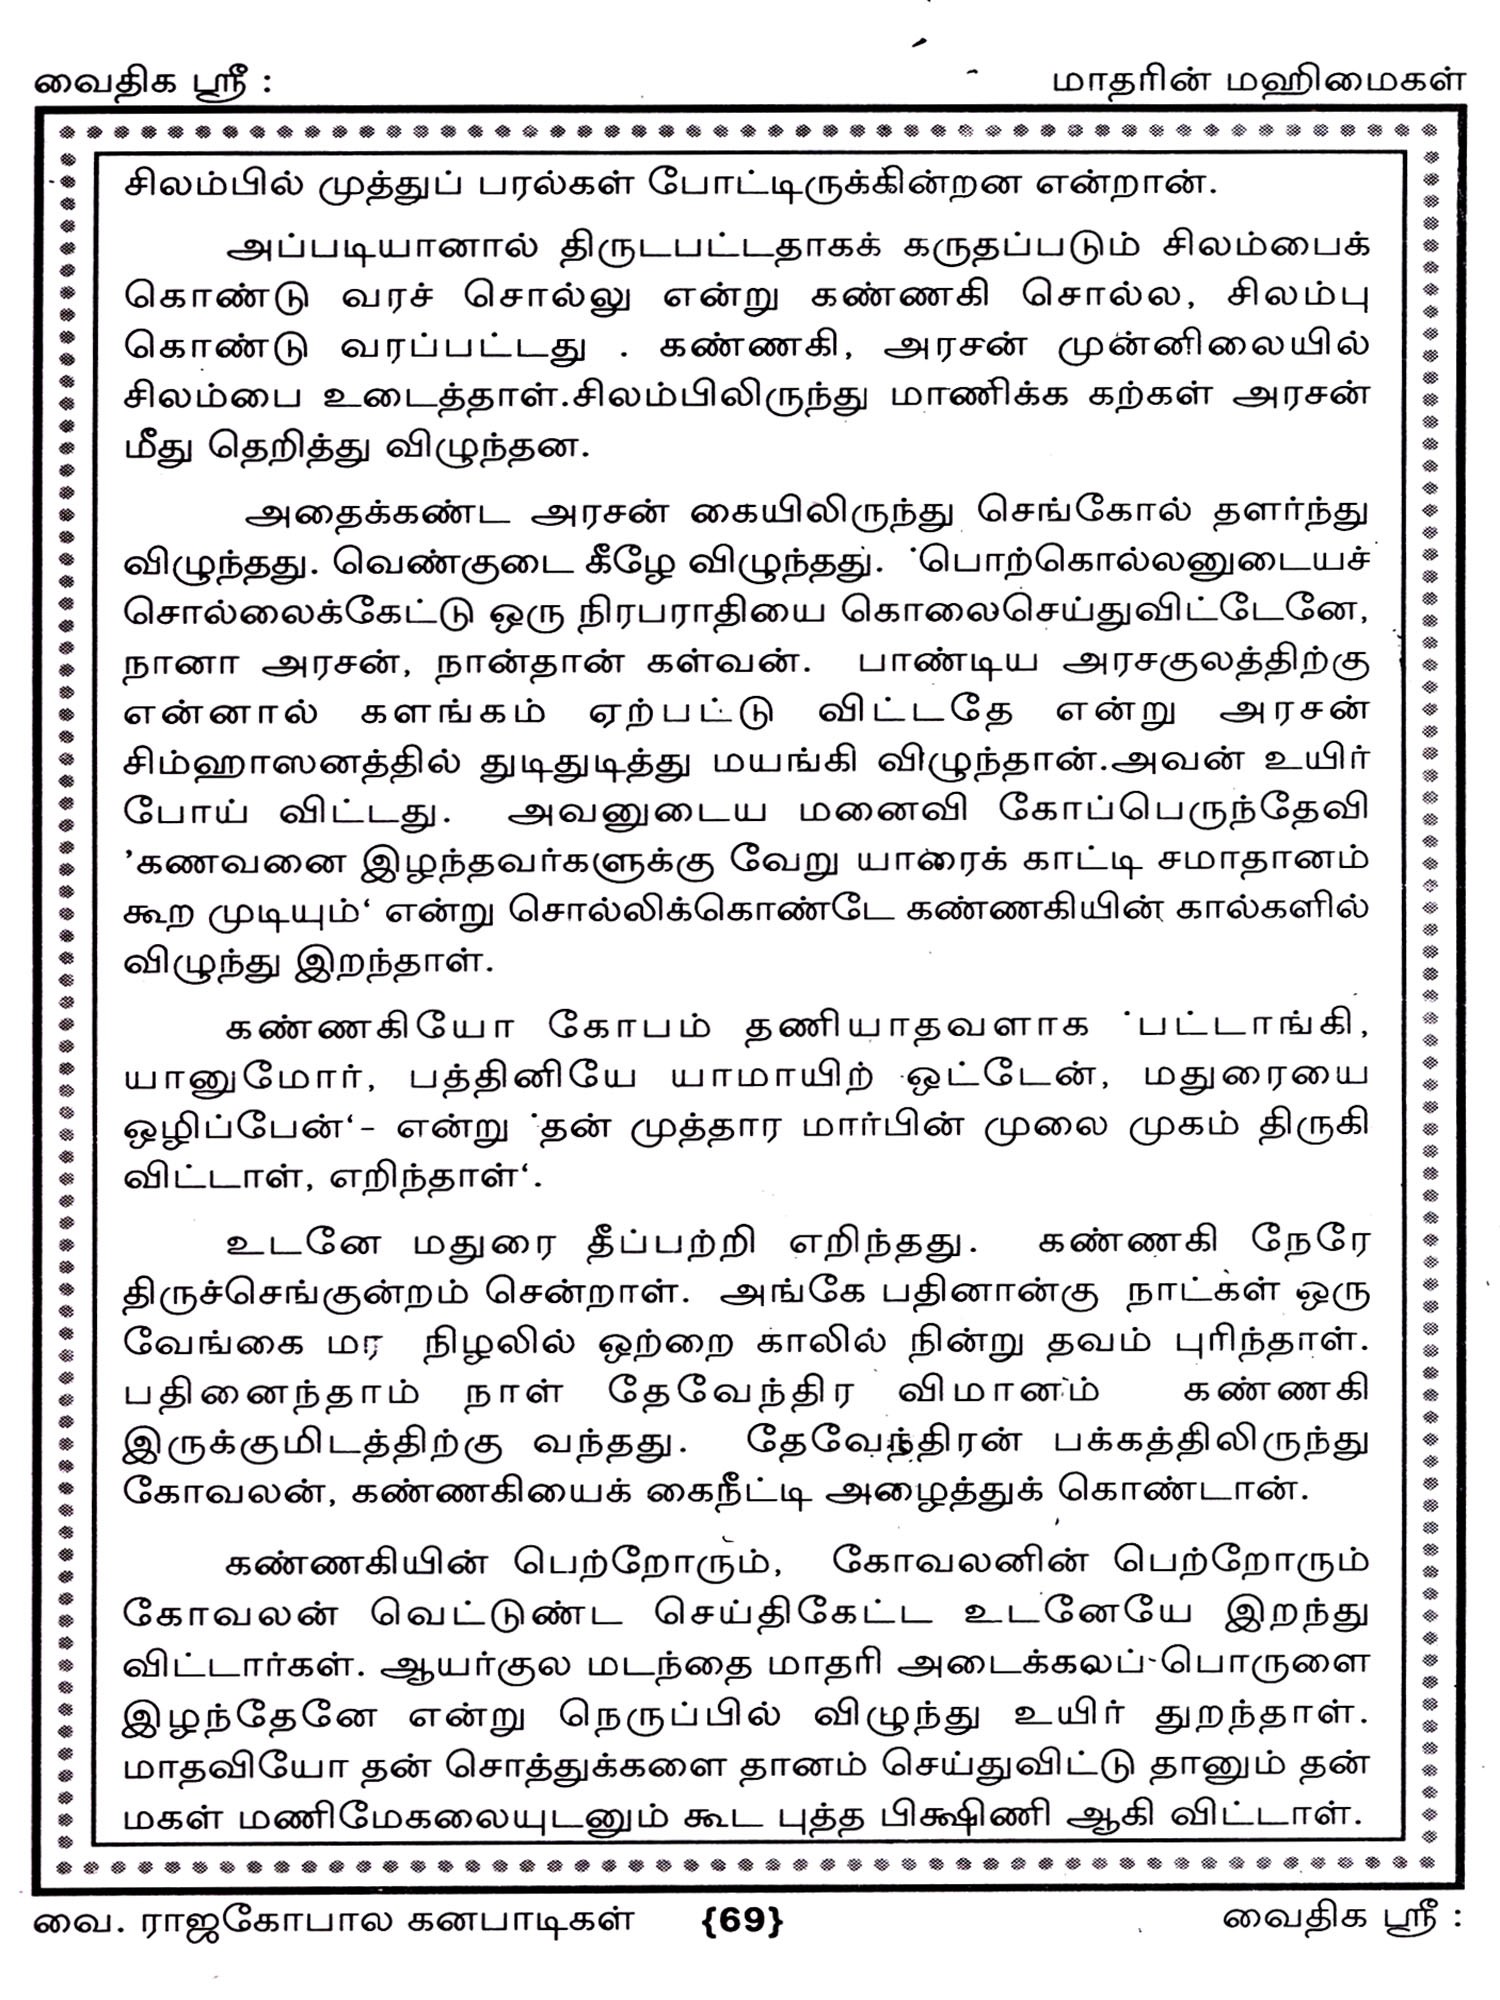 வைதிக ஸ்ரீ : மாதரின் மஹிமைகள்
சிலம்பில் முத்துப் பரல்கள் போட்டிருக்கின்றன என்றான்.
அப்படியானால் திருடபட்டதாகக் கருதப்படும் சிலம்பைக்
கொண்டு வரச் சொல்லு என்று கண்ணகி சொல்ல, சிலம்பு
கொண்டு வரப்பட்டது . கண்ணகி, அரசன் முன்னிலையில்
சிலம்பை உடைத்தாள்.சிலம்பிலிருந்து மாணிக்க கற்கள் அரசன்
மீது தெறித்து விழுந்தன.
அதைக்கண்ட அரசன் கையிலிருந்து செங்கோல் தளர்ந்து
விழுந்தது. வெண்குடை கீழே விழுந்தது. 'பொற்கொல்லனுடையச்
சொல்லைக்கேட்டு ஒரு நிரபராதியை கொலைசெய்துவிட்டேனே,
நானா அரசன், நான்தான் கள்வன். பாண்டிய அரசகுலத்திற்கு
என்னால் களங்கம் ஏற்பட்டு விட்டதே என்று அரசன்
சிம்ஹாஸனத்தில் துடிதுடித்து மயங்கி விழுந்தான்.அவன் உயிர்
போய் விட்டது. அவனுடைய மனைவி கோப்பெருந்தேவி
’கணவனை இழந்தவர்களுக்கு வேறு யாரைக் காட்டி சமாதானம்
கூற முடியும்‘ என்று சொல்லிக்கொண்டே கண்ணகியின் கால்களில்
விழுந்து இறந்தாள்.
கண்ணகியோ கோபம் தணியாதவளாக 'பட்டாங்கி,
யானுமோர், பத்தினியே யாமாயிற் ஒட்டேன், மதுரையை
ஒழிப்பேன்‘- என்று 'தன் முத்தார மார்பின் முலை முகம் திருகி
விட்டாள், எறிந்தாள்‘.
உடனே மதுரை தீப்பற்றி எறிந்தது. கண்ணகி நேரே
திருச்செங்குன்றம் சென்றாள். அங்கே பதினான்கு நாட்கள் ஒரு
வேங்கை மர நிழலில் ஒற்றை காலில் நின்று தவம் புரிந்தாள்.
பதினைந்தாம் நாள் தேவேந்திர விமானம் கண்ணகி
இருக்குமிடத்திற்கு வந்தது. தேவேந்திரன் பக்கத்திலிருந்து
கோவலன், கண்ணகியைக் கைநீட்டி அழைத்துக் கொண்டான்.
கண்ணகியின் பெற்றோரும், கோவலனின் பெற்றோரும்
கோவலன் வெட்டுண்ட செய்திகேட்ட உடனேயே இறந்து
விட்டார்கள். ஆயர்குல மடந்தை மாதரி அடைக்கலப்-பொருளை
இழந்தேனே என்று நெருப்பில் விழுந்து உயிர் துறந்தாள்.
மாதவியோ தன் சொத்துக்களை தானம் செய்துவிட்டு தானும் தன்
மகள் மணிமேகலையுடனும் கூட புத்த பிக்ஷிணி ஆகி விட்டாள்.
வை. ராஜகோபால கனபாடிகள் {69} வைதிக ஸ்ரீ :